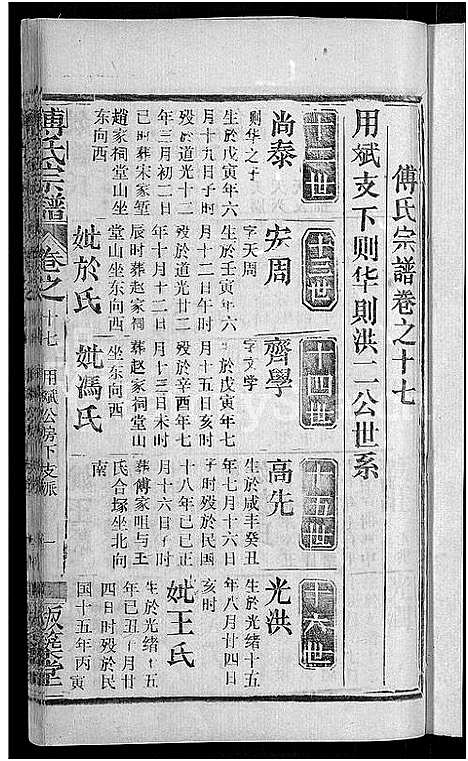 傅氏宗譜卷之十七
用斌支下则华则洪二公世系
十二世
十三世
十四世
十五世
十六世
尚泰
则华之子
生於戊寅年六
月十九日子时
殁於道光十二
年三月初二日
巳时葬宋家堑
趙家祠堂山坐
东向西
安周
字天周
生於壬寅年六
月十二日午时
殁於道光廿二
年十月十二日
辰时葬赵家祠
堂山坐东向西
妣於氏
齊學
字文学
於戊寅年七
月十五日亥时
殁於辛酉年七
月十三日未时
葬赵家祠堂山
坐东向西
妣馮氏
高先
生於咸丰癸丑
年七月十六日
子时殁於民国
十八年己巳正
月十六日子时
葬傅家咀与王
氏合塚坐北向
南
光洪
生於光绪十五
年八月廿四日
亥时
妣王氏
生於光绪十五
年己丑月廿
四日时殁於民
国十五年丙寅
傅氏宗譜
卷之十七
用斌公房下支派
一
版築堂